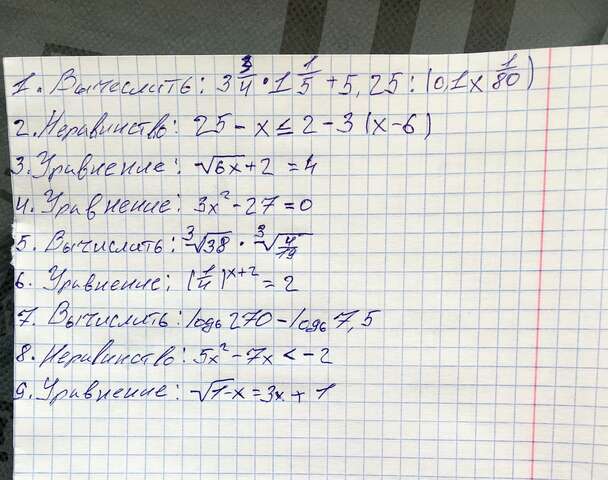 1. Вычеслить: 3 3/4 · 1 1/5 + 5,25 : (0,1 x 1/80)
2. Неравинство: 25 - x ≤ 2 - 3 (x - 6)
3. Уравнение: √6x + 2 = 4
4. Уравнение: 3x² - 27 = 0
5. Вычислить: ³√38 · ³√4/19
6. Уравнение: (1/4)ˣ⁺² = 2
7. Вычислить: log₆270 - log₆7,5
8. Неравинство: 5x² - 7x < -2
9. Уравнение: √1-x = 3x + 1